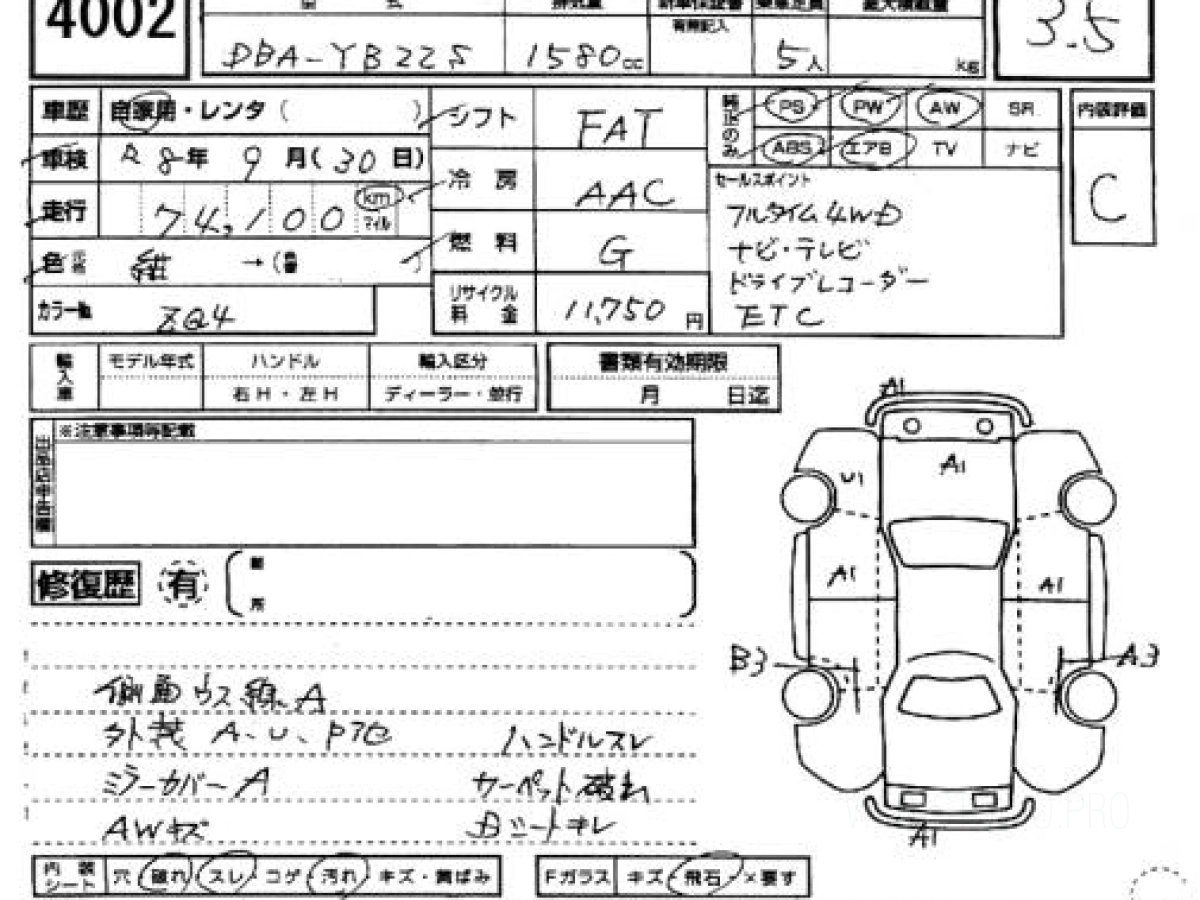 4002
型 式 排気量 新車保証書 乗車定員 最大積載量
有無記入
DBA-YB22S 1580cc 5人 kg
3.5
車歴 自家用・レンタ( )
シフト FAT
純正のみ PS PW AW SR
ABS エアB TV ナビ
内装評価
C
車検 R8年 9月(30日)
冷房 AAC
走行 74,100 km マイル
燃料 G
セールスポイント
フルタイム4WD
ナビ・テレビ
ドライブレコーダー
ETC
色 元色 →(色替 )
カラーNo. ZQ4
リサイクル料金 11,750円
輸入車 モデル年式 ハンドル 輸入区分
右H・左H ディーラー・並行
書類有効期限
月 日迄
※注意事項等記載
修復歴 有 箇所
A1
U1 A1
A1 A1
B3 A3
A1
側面ウス線A
外装 A、U、P7C
ハンドルスレ
ミラーカバーA
カーペット破れ
AWキズ
Bシートキレ
内装シート 穴・破れ・スレ・コゲ・汚れ・キズ・黄ばみ
Fガラス キズ・飛石・×要す